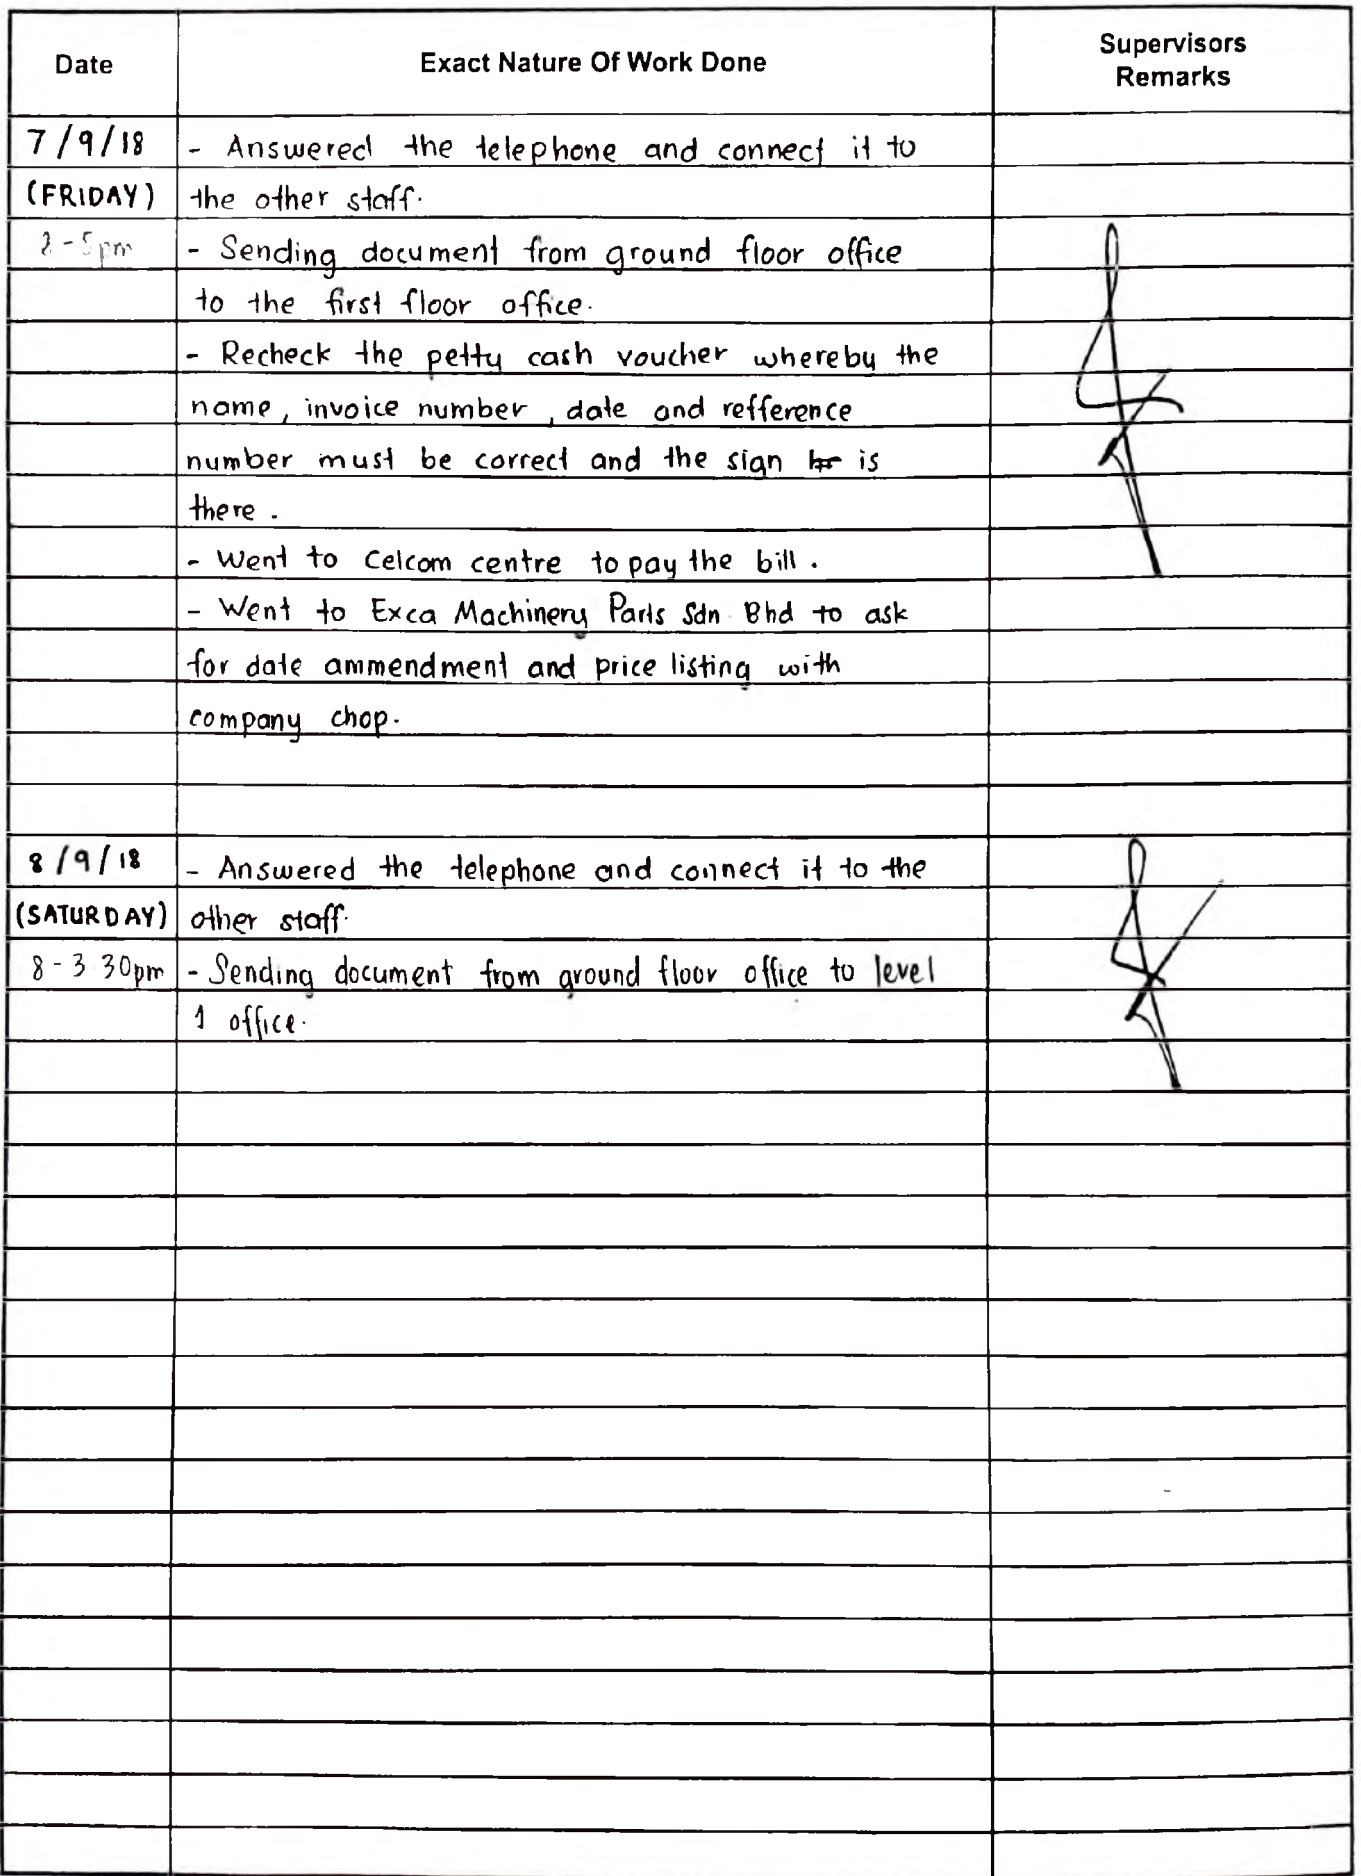 Date Exact Nature Of Work Done Supervisors
Remarks
7/9/18 - Answered the telephone and connect it to
(FRIDAY) the other staff.
8-5pm - Sending document from ground floor office
to the first floor office.
- Recheck the petty cash voucher whereby the
name, invoice number, date and refference
number must be correct and the sign is
there.
- Went to Celcom centre to pay the bill.
- Went to Exca Machinery Parts Sdn Bhd to ask
for date ammendment and price listing with
company chop.
8/9/18 - Answered the telephone and connect it to the
(SATURDAY) other staff.
8-3 30pm - Sending document from ground floor office to level
1 office.